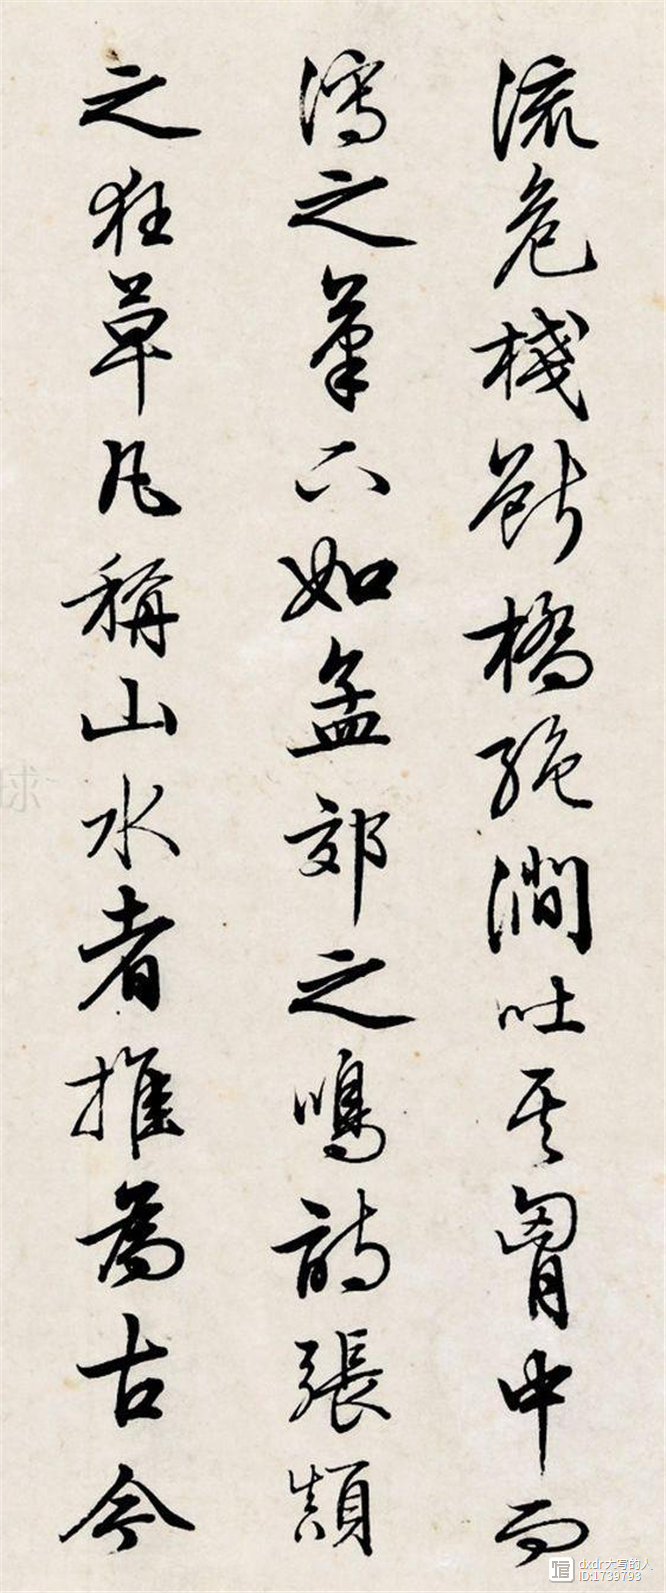 流危棧斷橋絶澗吐其胷中而
瀉之筆下如孟郊之鳴詩張顛
之狂草凡稱山水者推為古今
球
dxdr大写的人
ID:1739793